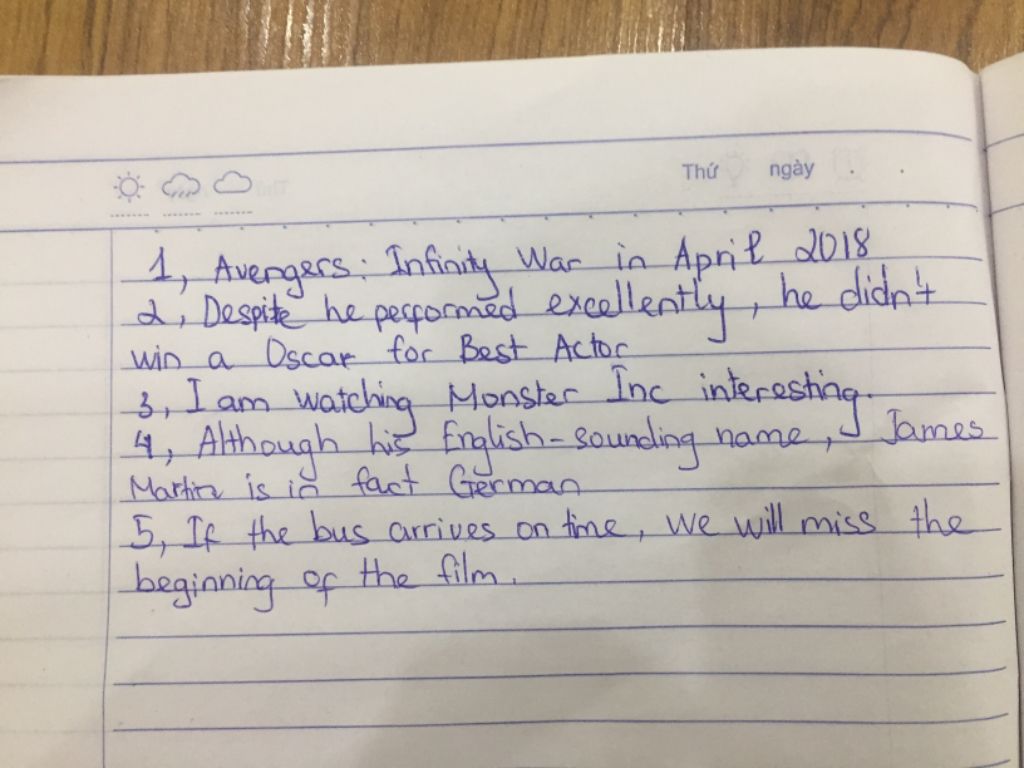 Thứ ngày
1, Avengers: Infinity War in April 2018
2, Despite he performed excellently, he didn't
win a Oscar for Best Actor
3, I am watching Monster Inc interesting.
4, Although his English-sounding name, James
Martin is in fact German
5, If the bus arrives on time, we will miss the
beginning of the film.